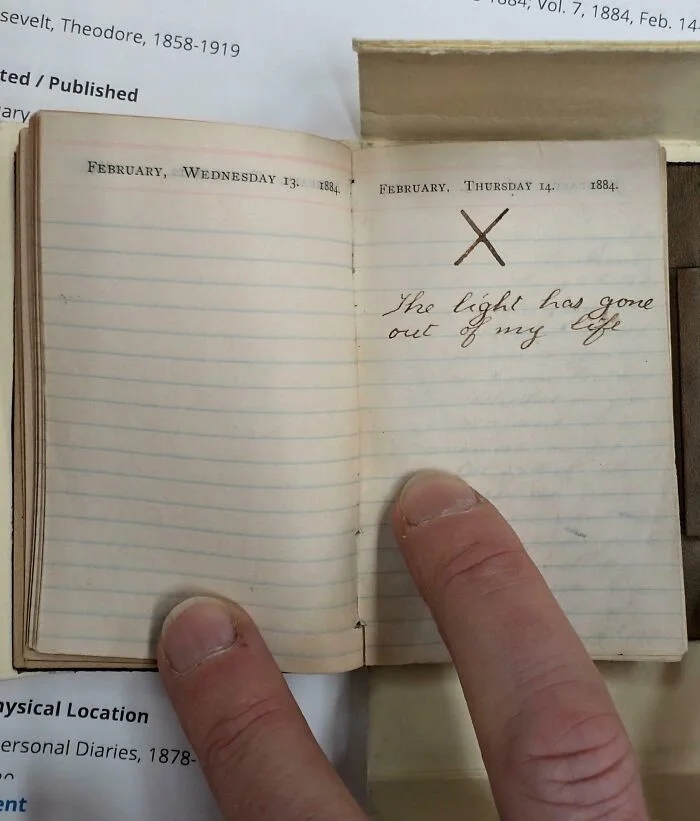 sevelt, Theodore, 1858-1919
1884; Vol. 7, 1884, Feb. 14
ted / Published
ary
FEBRUARY, WEDNESDAY 13. 1884.
FEBRUARY, THURSDAY 14. 1884.
X
The light has gone
out of my life
hysical Location
ersonal Diaries, 1878-
ent